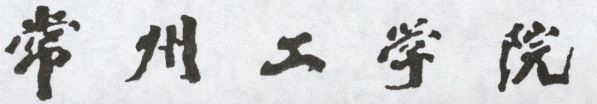 常州工学院